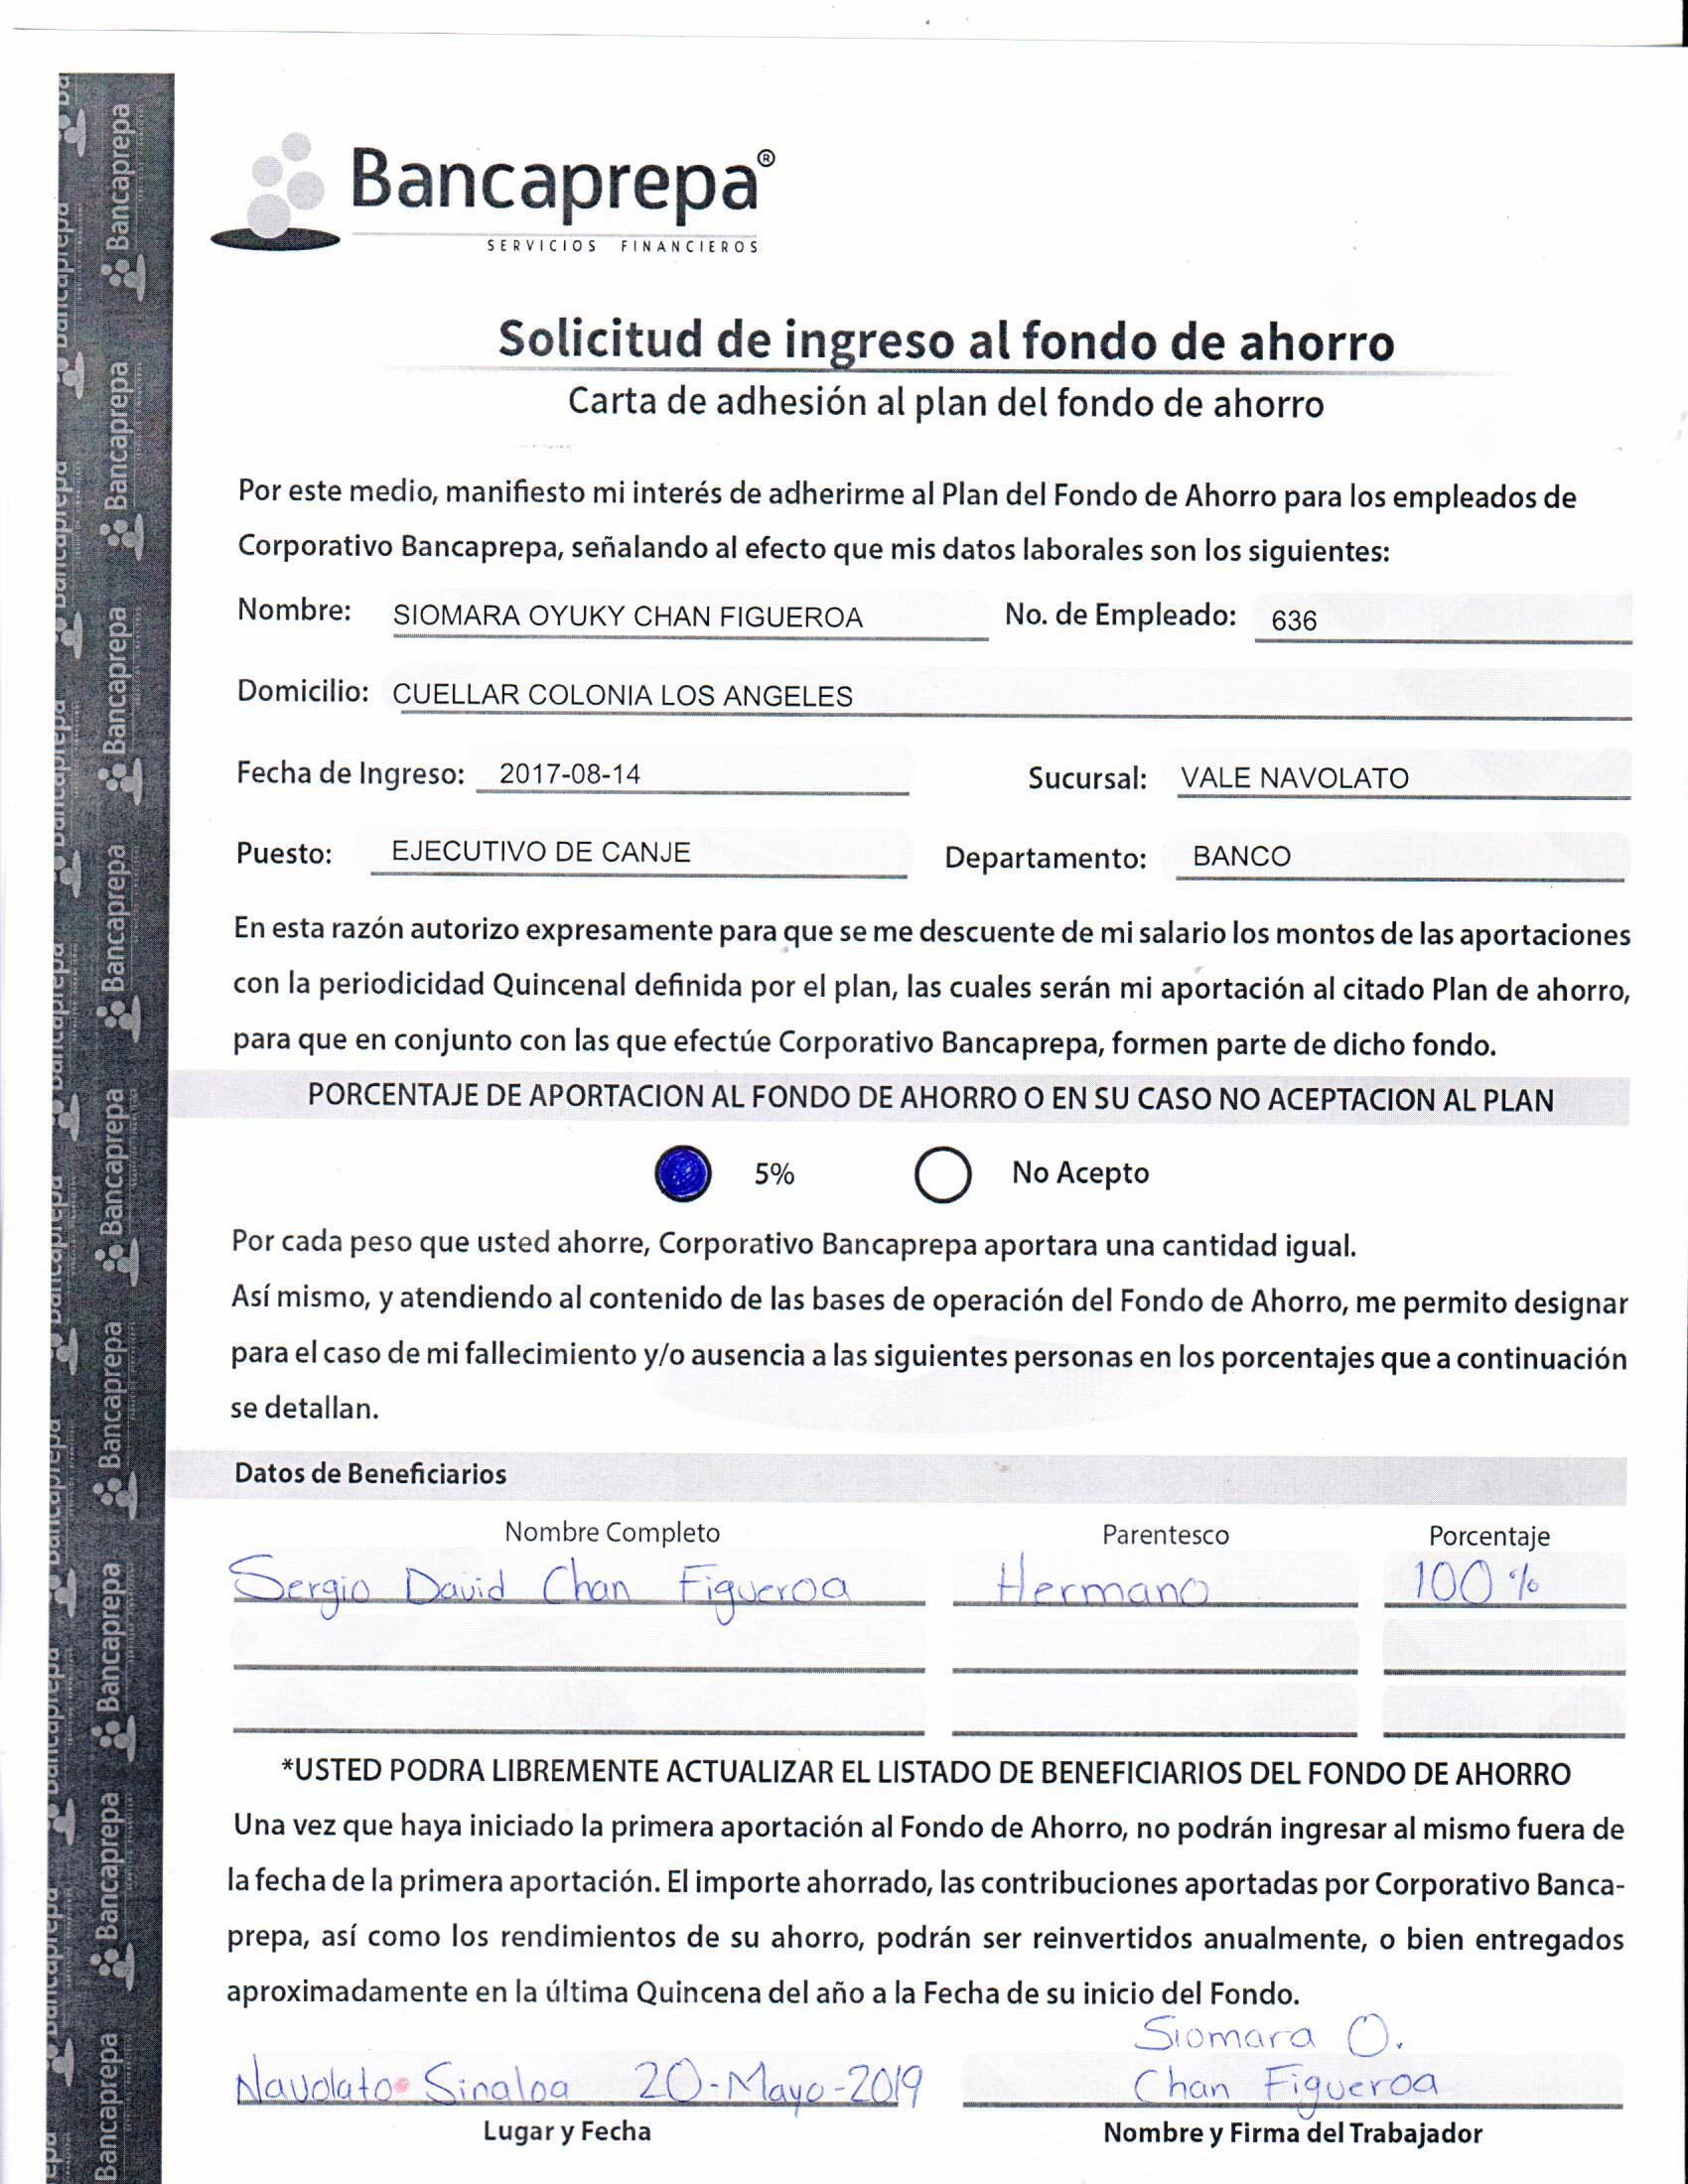 Bancaprepa®
SERVICIOS FINANCIEROS
Solicitud de ingreso al fondo de ahorro
Carta de adhesión al plan del fondo de ahorro
Por este medio, manifiesto mi interés de adherirme al Plan del Fondo de Ahorro para los empleados de
Corporativo Bancaprepa, señalando al efecto que mis datos laborales son los siguientes:
Nombre: SIOMARA OYUKY CHAN FIGUEROA No. de Empleado: 636
Domicilio: CUELLAR COLONIA LOS ANGELES
Fecha de Ingreso: 2017-08-14 Sucursal: VALE NAVOLATO
Puesto: EJECUTIVO DE CANJE Departamento: BANCO
En esta razón autorizo expresamente para que se me descuente de mi salario los montos de las aportaciones
con la periodicidad Quincenal definida por el plan, las cuales serán mi aportación al citado Plan de ahorro,
para que en conjunto con las que efectúe Corporativo Bancaprepa, formen parte de dicho fondo.
PORCENTAJE DE APORTACION AL FONDO DE AHORRO O EN SU CASO NO ACEPTACION AL PLAN
5% No Acepto
Por cada peso que usted ahorre, Corporativo Bancaprepa aportara una cantidad igual.
Así mismo, y atendiendo al contenido de las bases de operación del Fondo de Ahorro, me permito designar
para el caso de mi fallecimiento y/o ausencia a las siguientes personas en los porcentajes que a continuación
se detallan.
Datos de Beneficiarios
Nombre Completo Parentesco Porcentaje
Sergio David Chan Figueroa Hermano 100%
*USTED PODRA LIBREMENTE ACTUALIZAR EL LISTADO DE BENEFICIARIOS DEL FONDO DE AHORRO
Una vez que haya iniciado la primera aportación al Fondo de Ahorro, no podrán ingresar al mismo fuera de
la fecha de la primera aportación. El importe ahorrado, las contribuciones aportadas por Corporativo Banca-
prepa, así como los rendimientos de su ahorro, podrán ser reinvertidos anualmente, o bien entregados
aproximadamente en la última Quincena del año a la Fecha de su inicio del Fondo.
Siomara O.
Navolato Sinaloa 20-Mayo-2019 Chan Figueroa
Lugar y Fecha Nombre y Firma del Trabajador